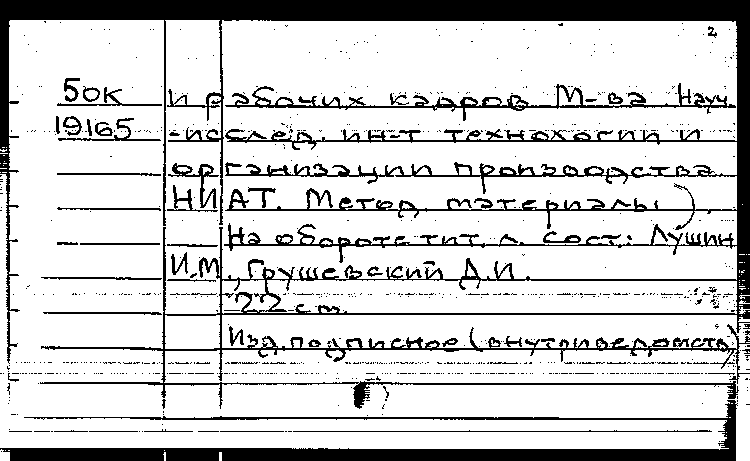 2
50К и рабочих кадров М-ва. Науч.
19165 -исслед. ин-т технологии и
организации производства
НИАТ. Метод. материалы).
На обороте тит. л. сост.: Лушин
И.М., Грушевский Д.И.
22 см.
Изд. подписное (внутриведомств)